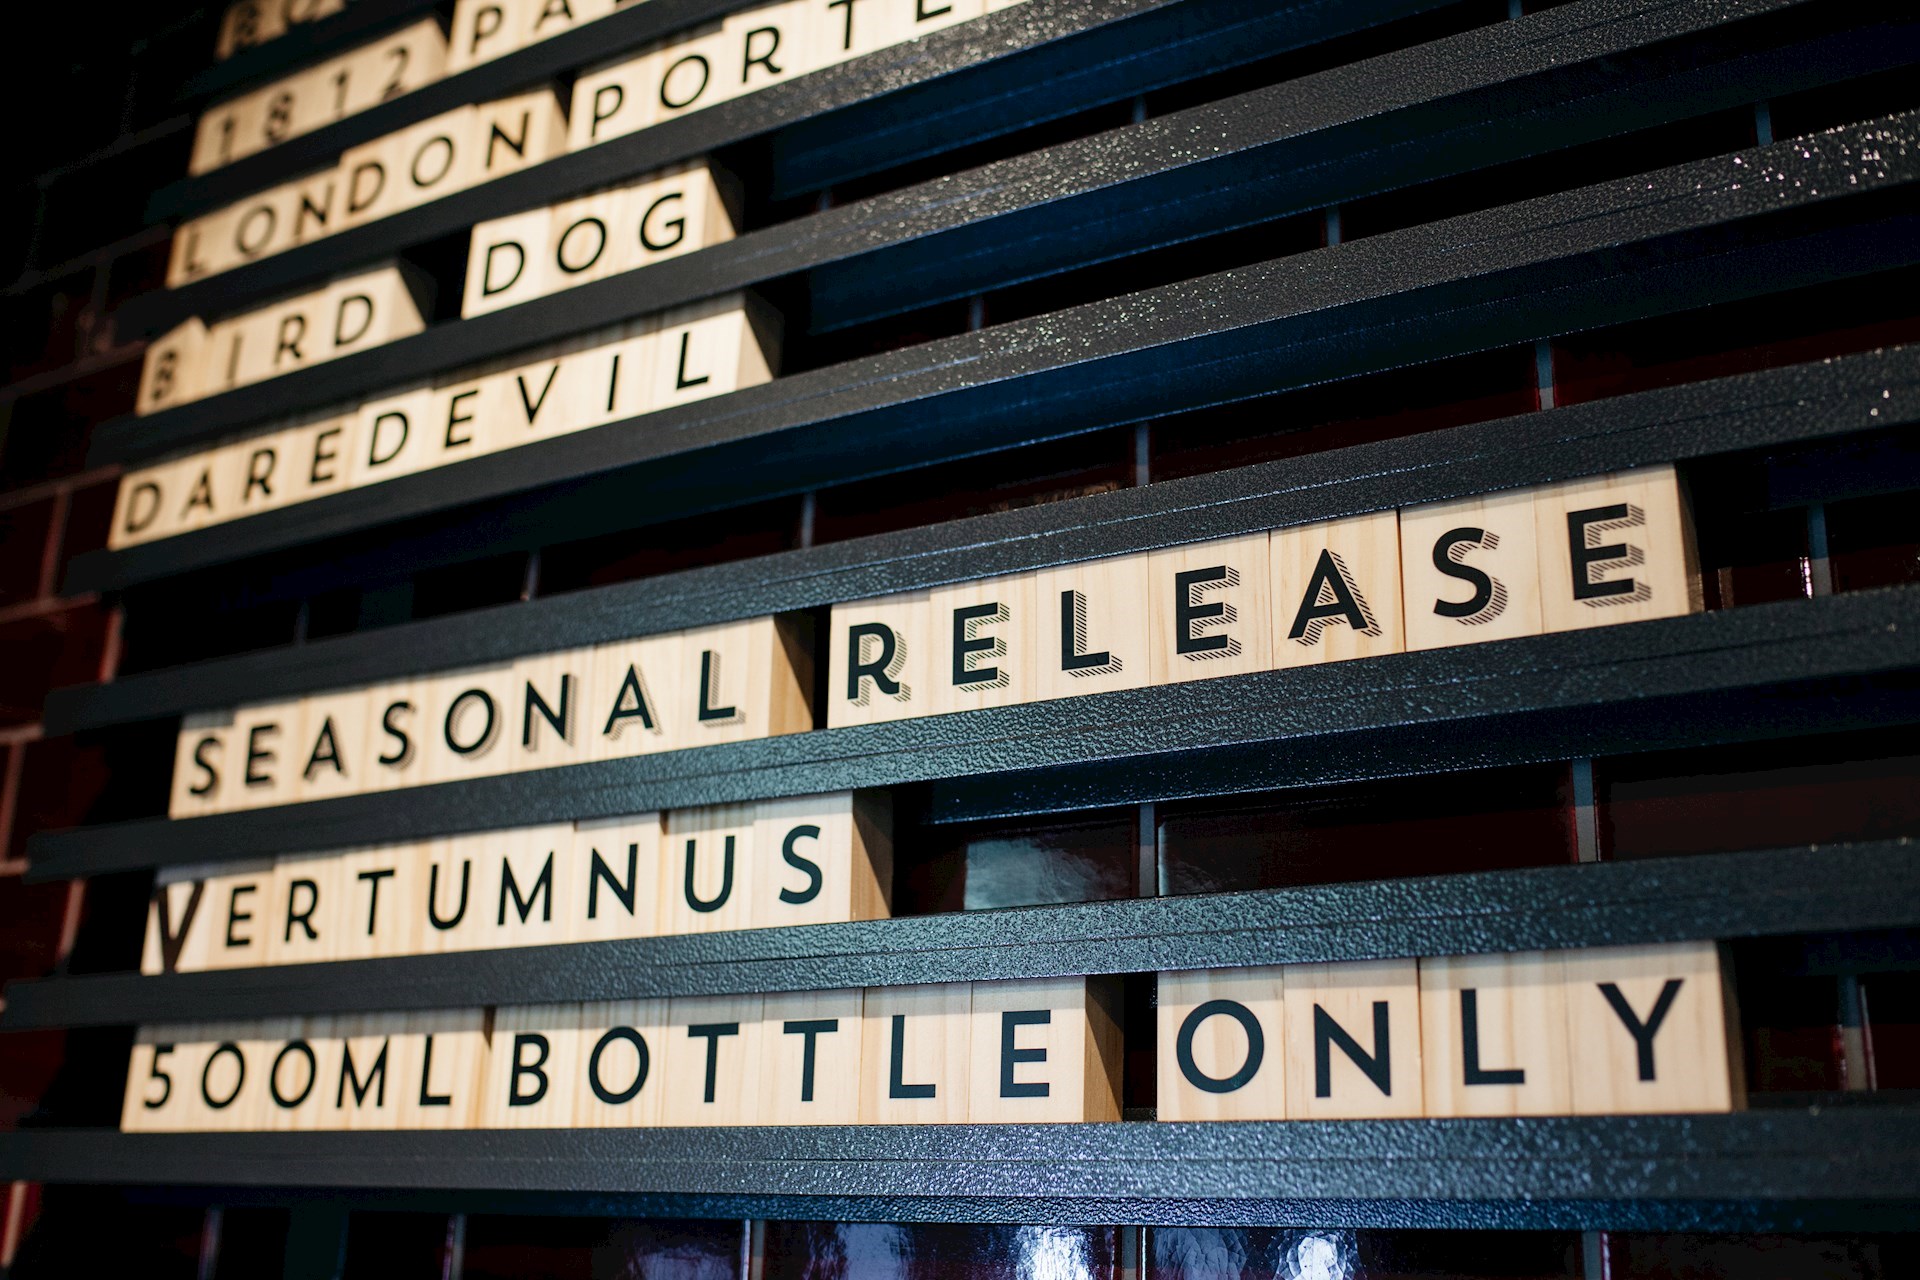 1812
LONDON
BIRD DOG
DAREDEVIL
SEASONAL RELEASE
VERTUMNUS
500ML BOTTLE ONLY